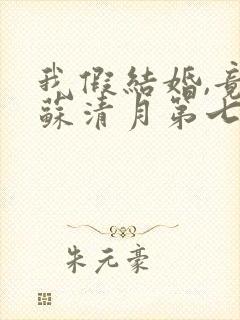 我假结婚,竟
蘇清月第七
朱元豪